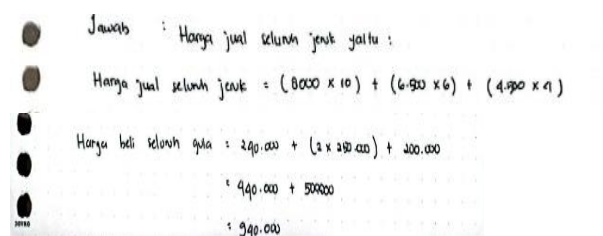 Jawab : Harga jual seluruh jeruk yaitu :
Harga jual seluruh jeruk = (8000 x 10) + (6.500 x 6) + (4.500 x 4)
Harga beli seluruh gula : 240.000 + (2 x 250.000) + 200.000
: 440.000 + 500000
: 940.000